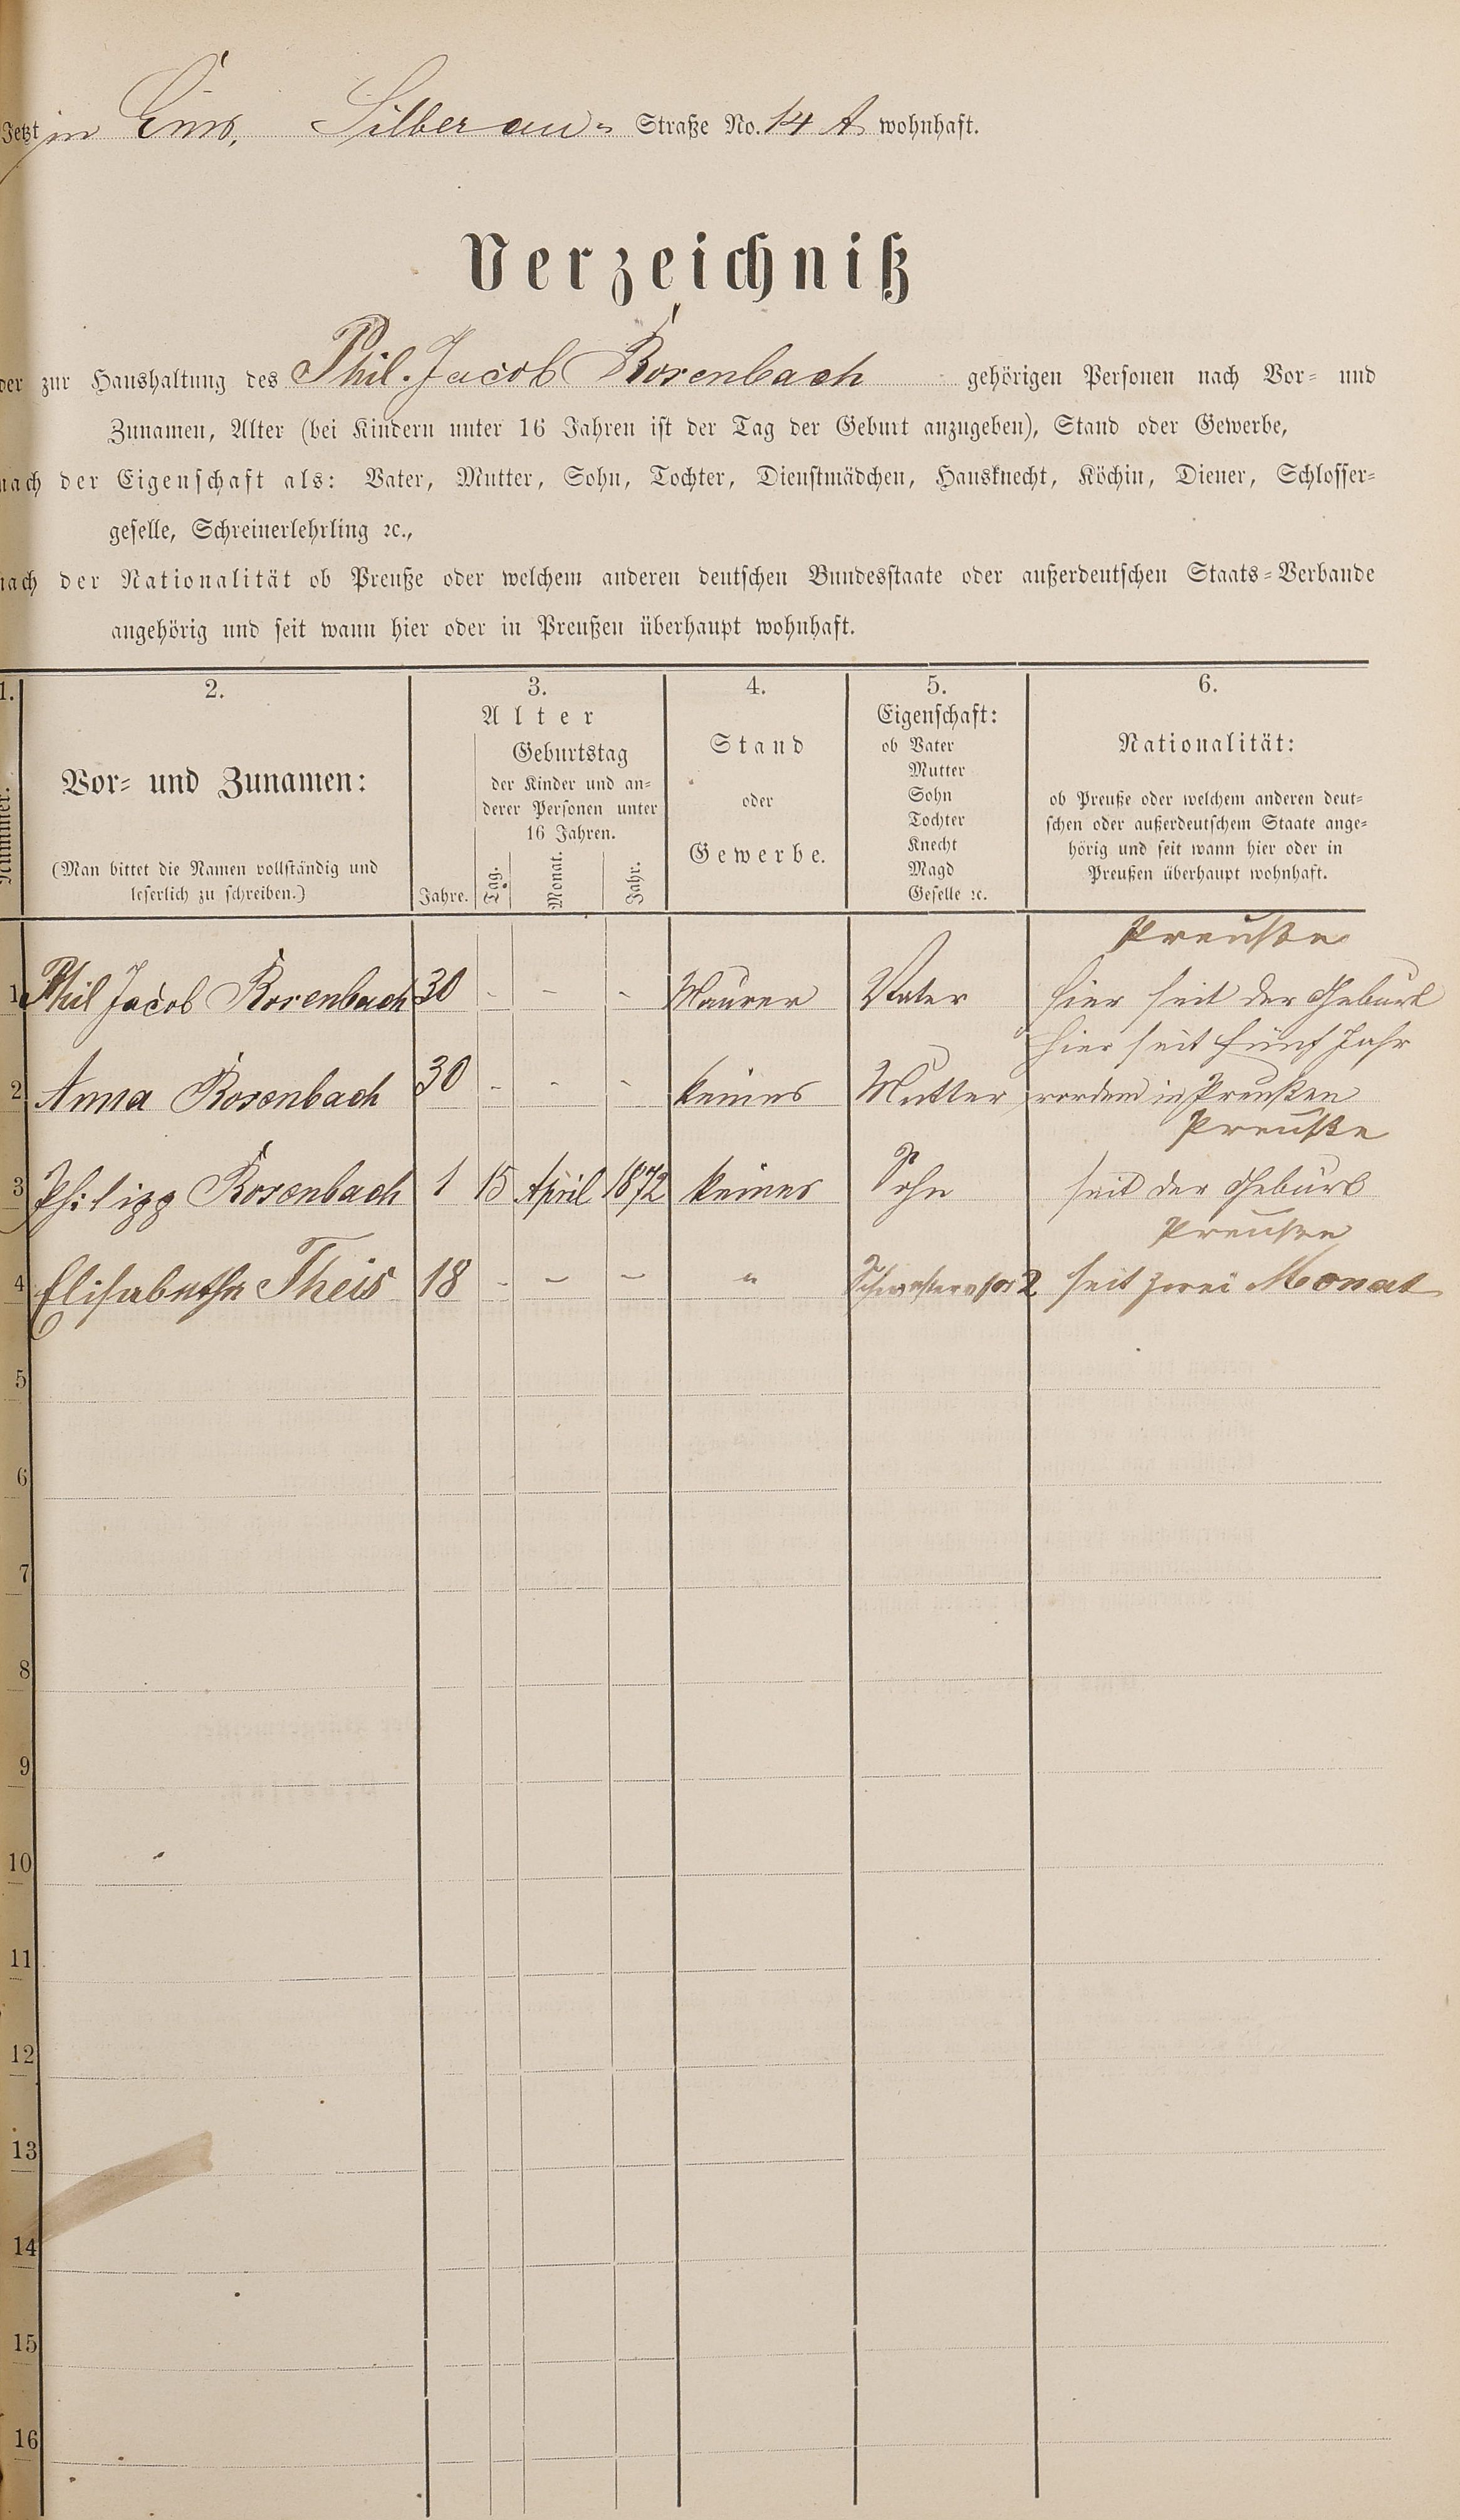 Jetzt in Ems, Silberau- Straße No. 14 A wohnhaft.
Verzeichniß
der zur Haushaltung des Phil. Jacob Rosenbach gehörigen Personen nach Vor- und
Zunamen, Alter (bei Kindern unter 16 Jahren ist der Tag der Geburt anzugeben), Stand oder Gewerbe,
nach der Eigenschaft als: Vater, Mutter, Sohn, Tochter, Dienstmädchen, Hausknecht, Köchin, Diener, Schlosser-
geselle, Schreinerlehrling ꝛc.,
nach der Nationalität ob Preuße oder welchem anderen deutschen Bundesstaate oder außerdeutschen Staats-Verbande
angehörig und seit wann hier oder in Preußen überhaupt wohnhaft.
1. 2. 3. 4. 5. 6.
Nummer.
Vor- und Zunamen:
(Man bittet die Namen vollständig und
leserlich zu schreiben.)
Alter
Geburtstag
der Kinder und an-
derer Personen unter
16 Jahren.
Jahre. Tag. Monat. Jahr.
Stand
oder
Gewerbe.
Eigenschaft:
ob Vater
Mutter
Sohn
Tochter
Knecht
Magd
Geselle ꝛc.
Nationalität:
ob Preuße oder welchem anderen deut-
schen oder außerdeutschem Staate ange-
hörig und seit wann hier oder in
Preußen überhaupt wohnhaft.
Preuße
1 Phil Jacob Rosenbach 30 - - - Maurer Vater hier seit der Geburt
hier seit fünf Jahr
2 Anna Rosenbach 30 - - - keines Mutter vordem in Preußen
Preuße
3 Philipp Rosenbach 1 15 April 1872 keines Sohn seit der Geburt
Preuße
4 Elisabetha Theis 18 - - - " seit zwei Monat
5
6
7
8
9
10
11
12
13
14
15
16